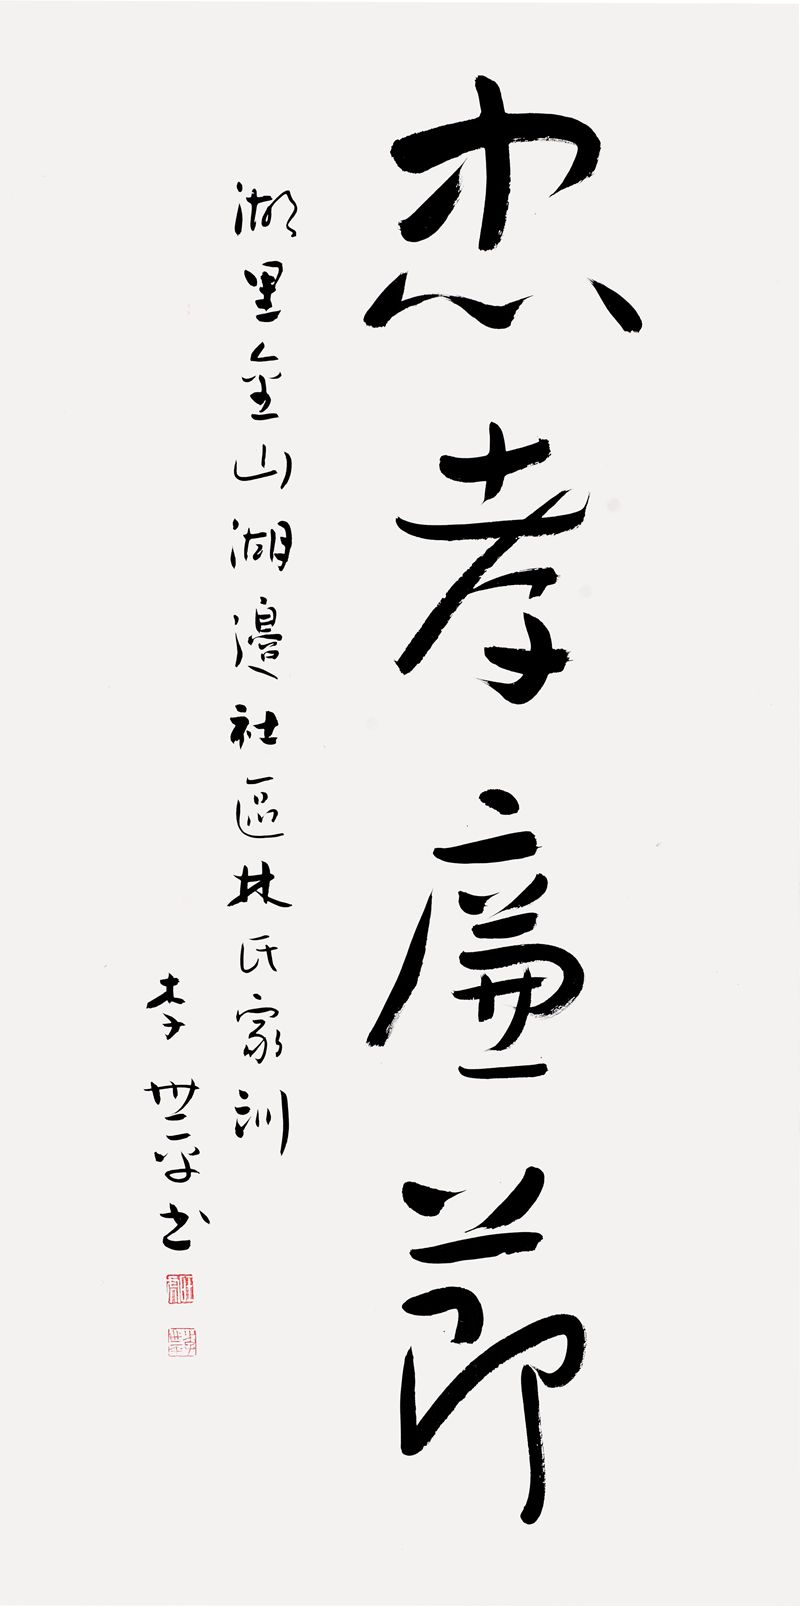 忠孝廉節
湖里金山湖邊社區林氏家訓
李世平書